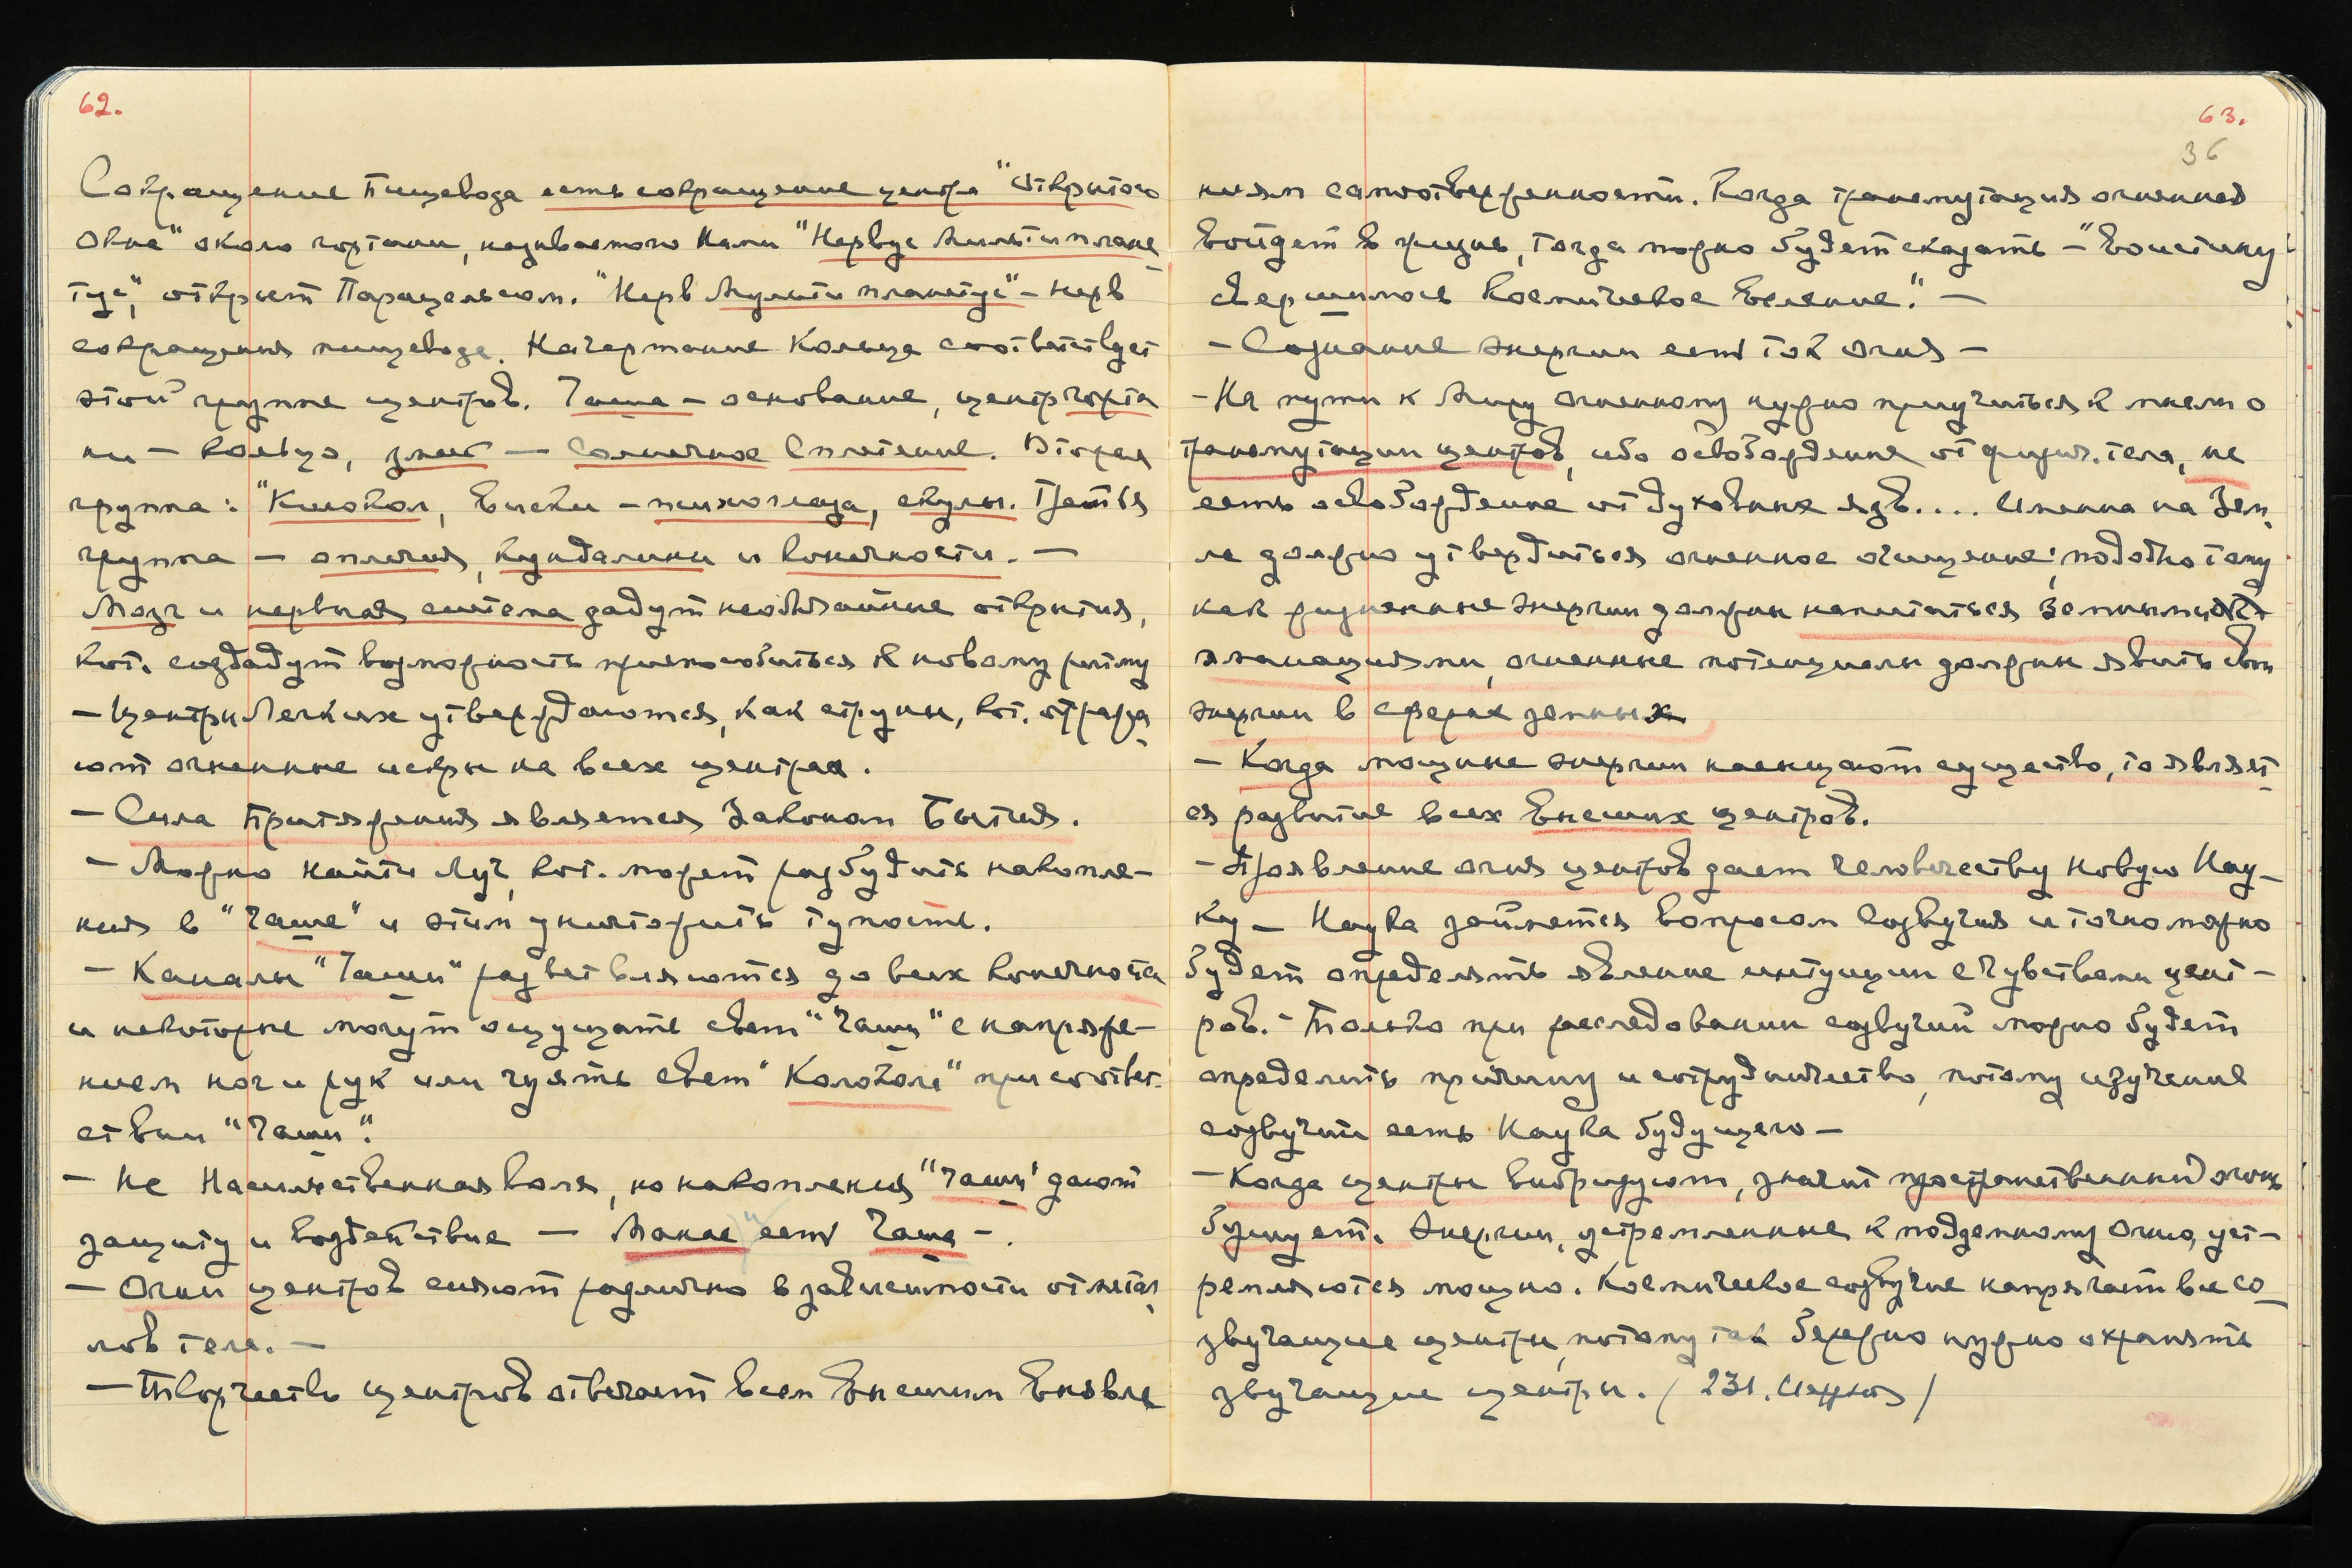 62.
Сокращение Пищевода есть сокращение центра "Открытого
Окна" около гортани, называемого Нами "Нервус Мультиплане
тус", открыт Парацельсом. "Нерв Мульти планетус" – нерв
сокращения пищевода. Начертание Кольца соответствует
этой группе центров. Чаша – основание, центр горта
ни – кольцо, змей – Солнечное Сплетение. Вторая
группа: "Колокол, Виски – психоглаза, скулы. Третья
группа – оплечия, Кундалини и Конечности. –
Мозг и нервная система дадут необычайные открытия,
кот. создадут возможность приспособиться к новому ритму
– Центры Легких утверждаются, как струны, кот. отража
ют огненные искры на всех центрах.
– Сила Притяжения является Законом Бытия.
– Можно найти Луч, кот. может разбудить накопле–
ния в "Чаше" и этим уничтожить тупость.
– Каналы "Чаши" разветвляются до всех конечноста
и некоторые могут ощущать свет "Чаши" с напряже–
нием ног и рук или чуять свет "Колокола" при соответ–
ствии "Чаши".
– Не Насильственная воля, но накопления "Чаши" дают
защиту и воздействие – Манас" есть Чаша –.
– Огни центров сияют различно в зависимости от метал
лов тела. –
– Творчество центров отвечает всем Внешним Вновле
63.
36
ниям самоотверженности. Когда трансмутация огненная
войдет в жизнь, тогда можно будет сказать – "Воистину
свершилось Космическое Веление". –
– Сознание энергии есть ток огня –
– На пути к Миру Огненному нужно приучиться к мысли о
трансмутации центров, ибо освобождение от физич. тела, не
есть освобождение от духовных язв.... Именно на Зем
ле должно утвердиться огненное очищение; подобно тому
как жизненные энергии должны напитаться земными
эманациями, огненные потенциалы должны явить свои
энергии в сферах земных
– Когда мощные энергии насыщают существо, то являет
ся развитие всех Внешних центров.
– Проявление огня центров дает человечеству Новую Нау–
ку – Наука займется вопросом Созвучия и точно можно
будет определять явление интуиции с Чувствами цент–
ров. – Только при расследовании созвучий можно будет
определить причину и сотрудничество, потому изучение
созвучий есть Наука будущего –
– Когда центры вибрируют, значит пространственный огонь
бушует. Энергии, устремленные к подземному огню, уст–
ремляются мощно. Космическое созвучие напрягает все со
звучащие центры, потому так бережно нужно охранять
звучащие центры. /231. Иерхия/